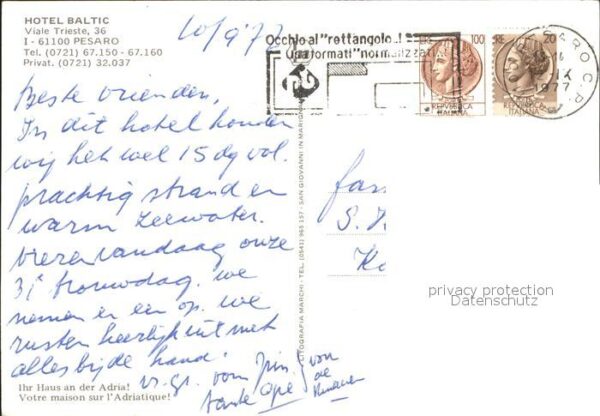 HOTEL BALTIC
Viale Trieste, 36
I - 61100 PESARO
Tel. (0721) 67.150 - 67.160
Privat. (0721) 32.037
10/9 '77
Occhio al "rettangolo
formati" "normalizzati
100
20
REPVBBLICA
ITALIANA
REPVBBLICA
ITALIANA
PESARO C.P.
IX
1977
Beste vrienden,
In dit hotel houden
wij het wel 15 dg vol.
prachtig strand en
warm zeewater.
vieren vandaag onze
31e trouwdag. we
nemen er een op. we
rusten heerlijk uit met
alles bij de hand!
vr. gr. van
tante
van
de
Fam
S.
LITOGRAFIA MARCHI - TEL. (0541) 963 157 - SAN GIOVANNI IN MARIGN
privacy protection
Datenschutz
Ihr Haus an der Adria!
Votre maison sur l'Adriatique!